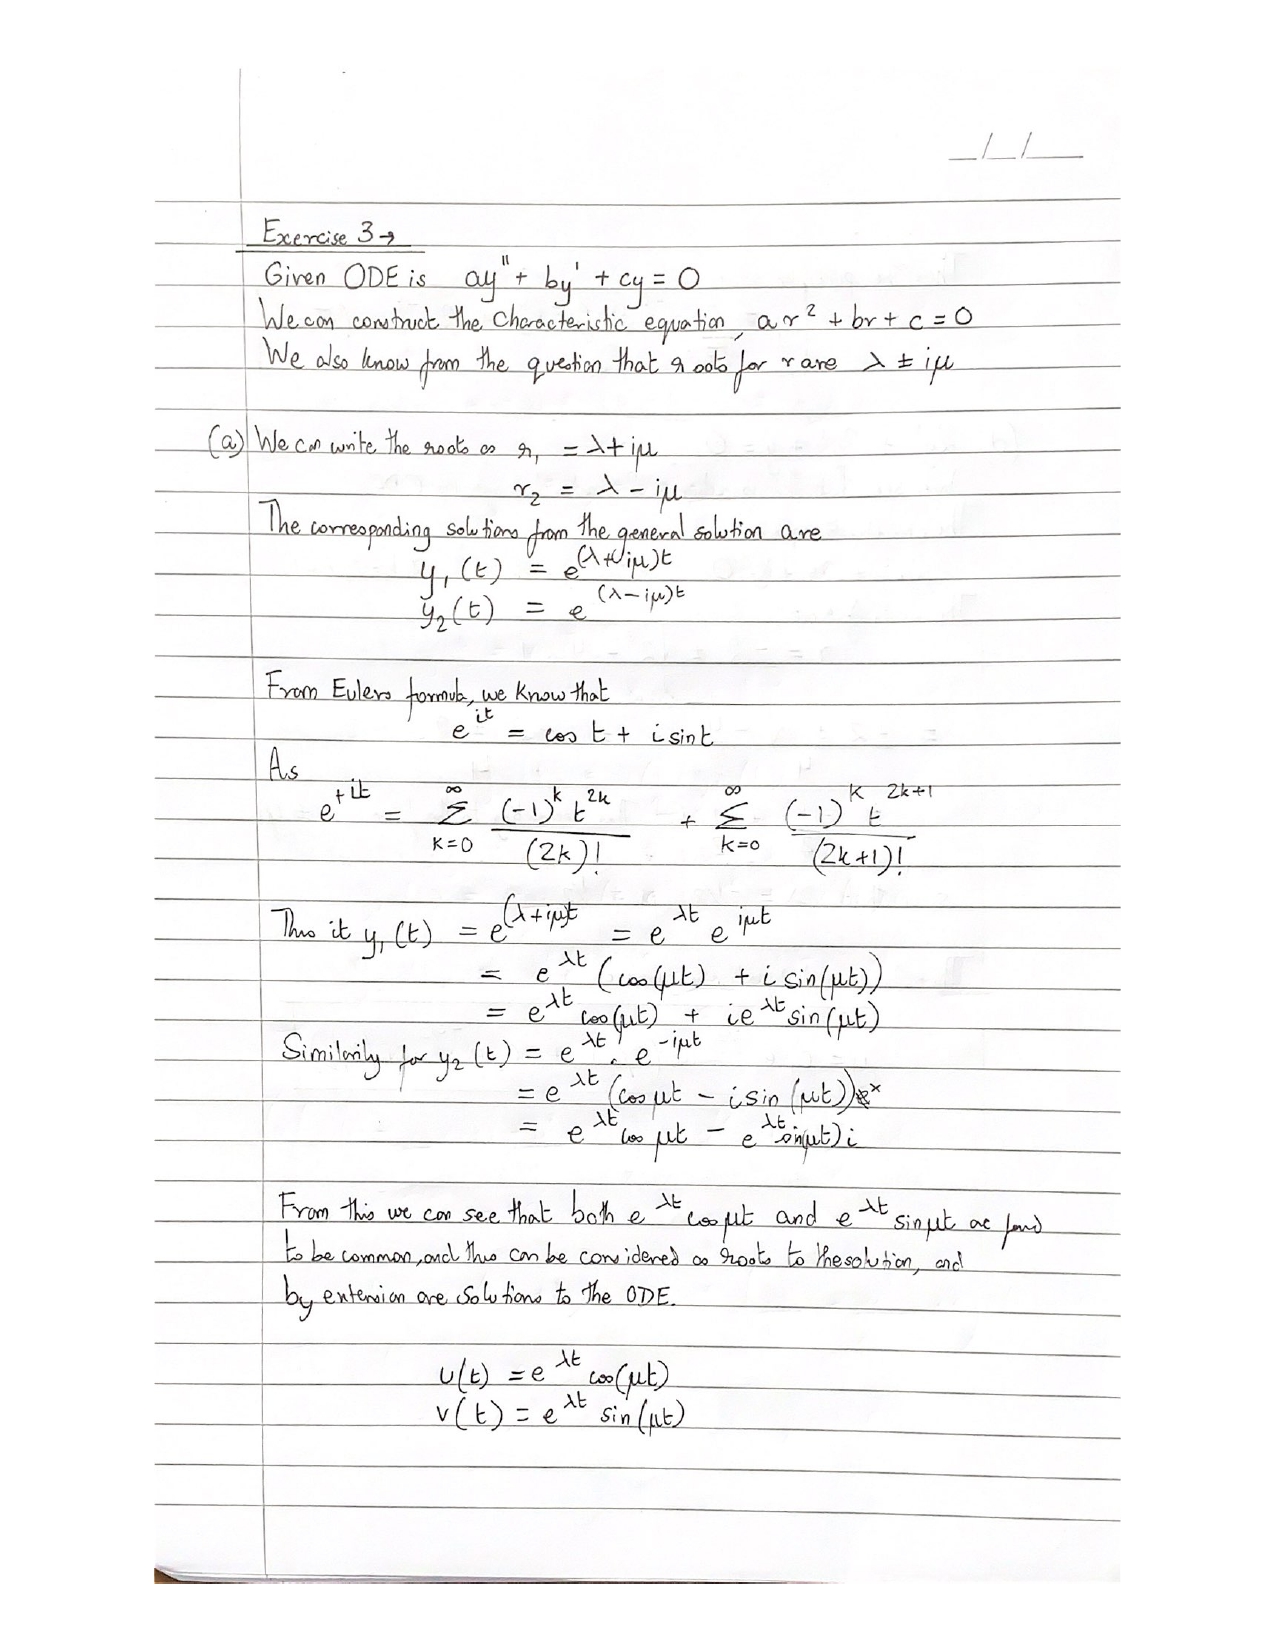 _/_/__
Exercise 3→
Given ODE is ay'' + by' + cy = 0
We can construct the Characteristic equation, ar² + br + c = 0
We also know from the question that roots for r are λ ± iμ
(a) We can write the roots as r₁ = λ + iμ
r₂ = λ - iμ
The corresponding solutions from the general solution are
y₁(t) = e^(λ+iμ)t
y₂(t) = e^(λ-iμ)t
From Eulers formula, we know that
e^it = cos t + i sin t
As
e^+it = ∑_{k=0}^{∞} (-1)^k t^2k / (2k)! + ∑_{k=0}^{∞} (-1)^k t^2k+1 / (2k+1)!
Thus it y₁(t) = e^(λ+iμ)t = e^λt e^iμt
= e^λt (cos(μt) + i sin(μt))
= e^λt cos(μt) + ie^λt sin(μt)
Similarily for y₂(t) = e^λt . e^-iμt
= e^λt (cos μt - i sin(μt))
= e^λt cos μt - e^λt sin(μt) i
From this we can see that both e^λt cos μt and e^λt sin μt are found
to be common, and thus can be considered as roots to the solution, and
by extension are solutions to the ODE.
u(t) = e^λt cos(μt)
v(t) = e^λt sin(μt)